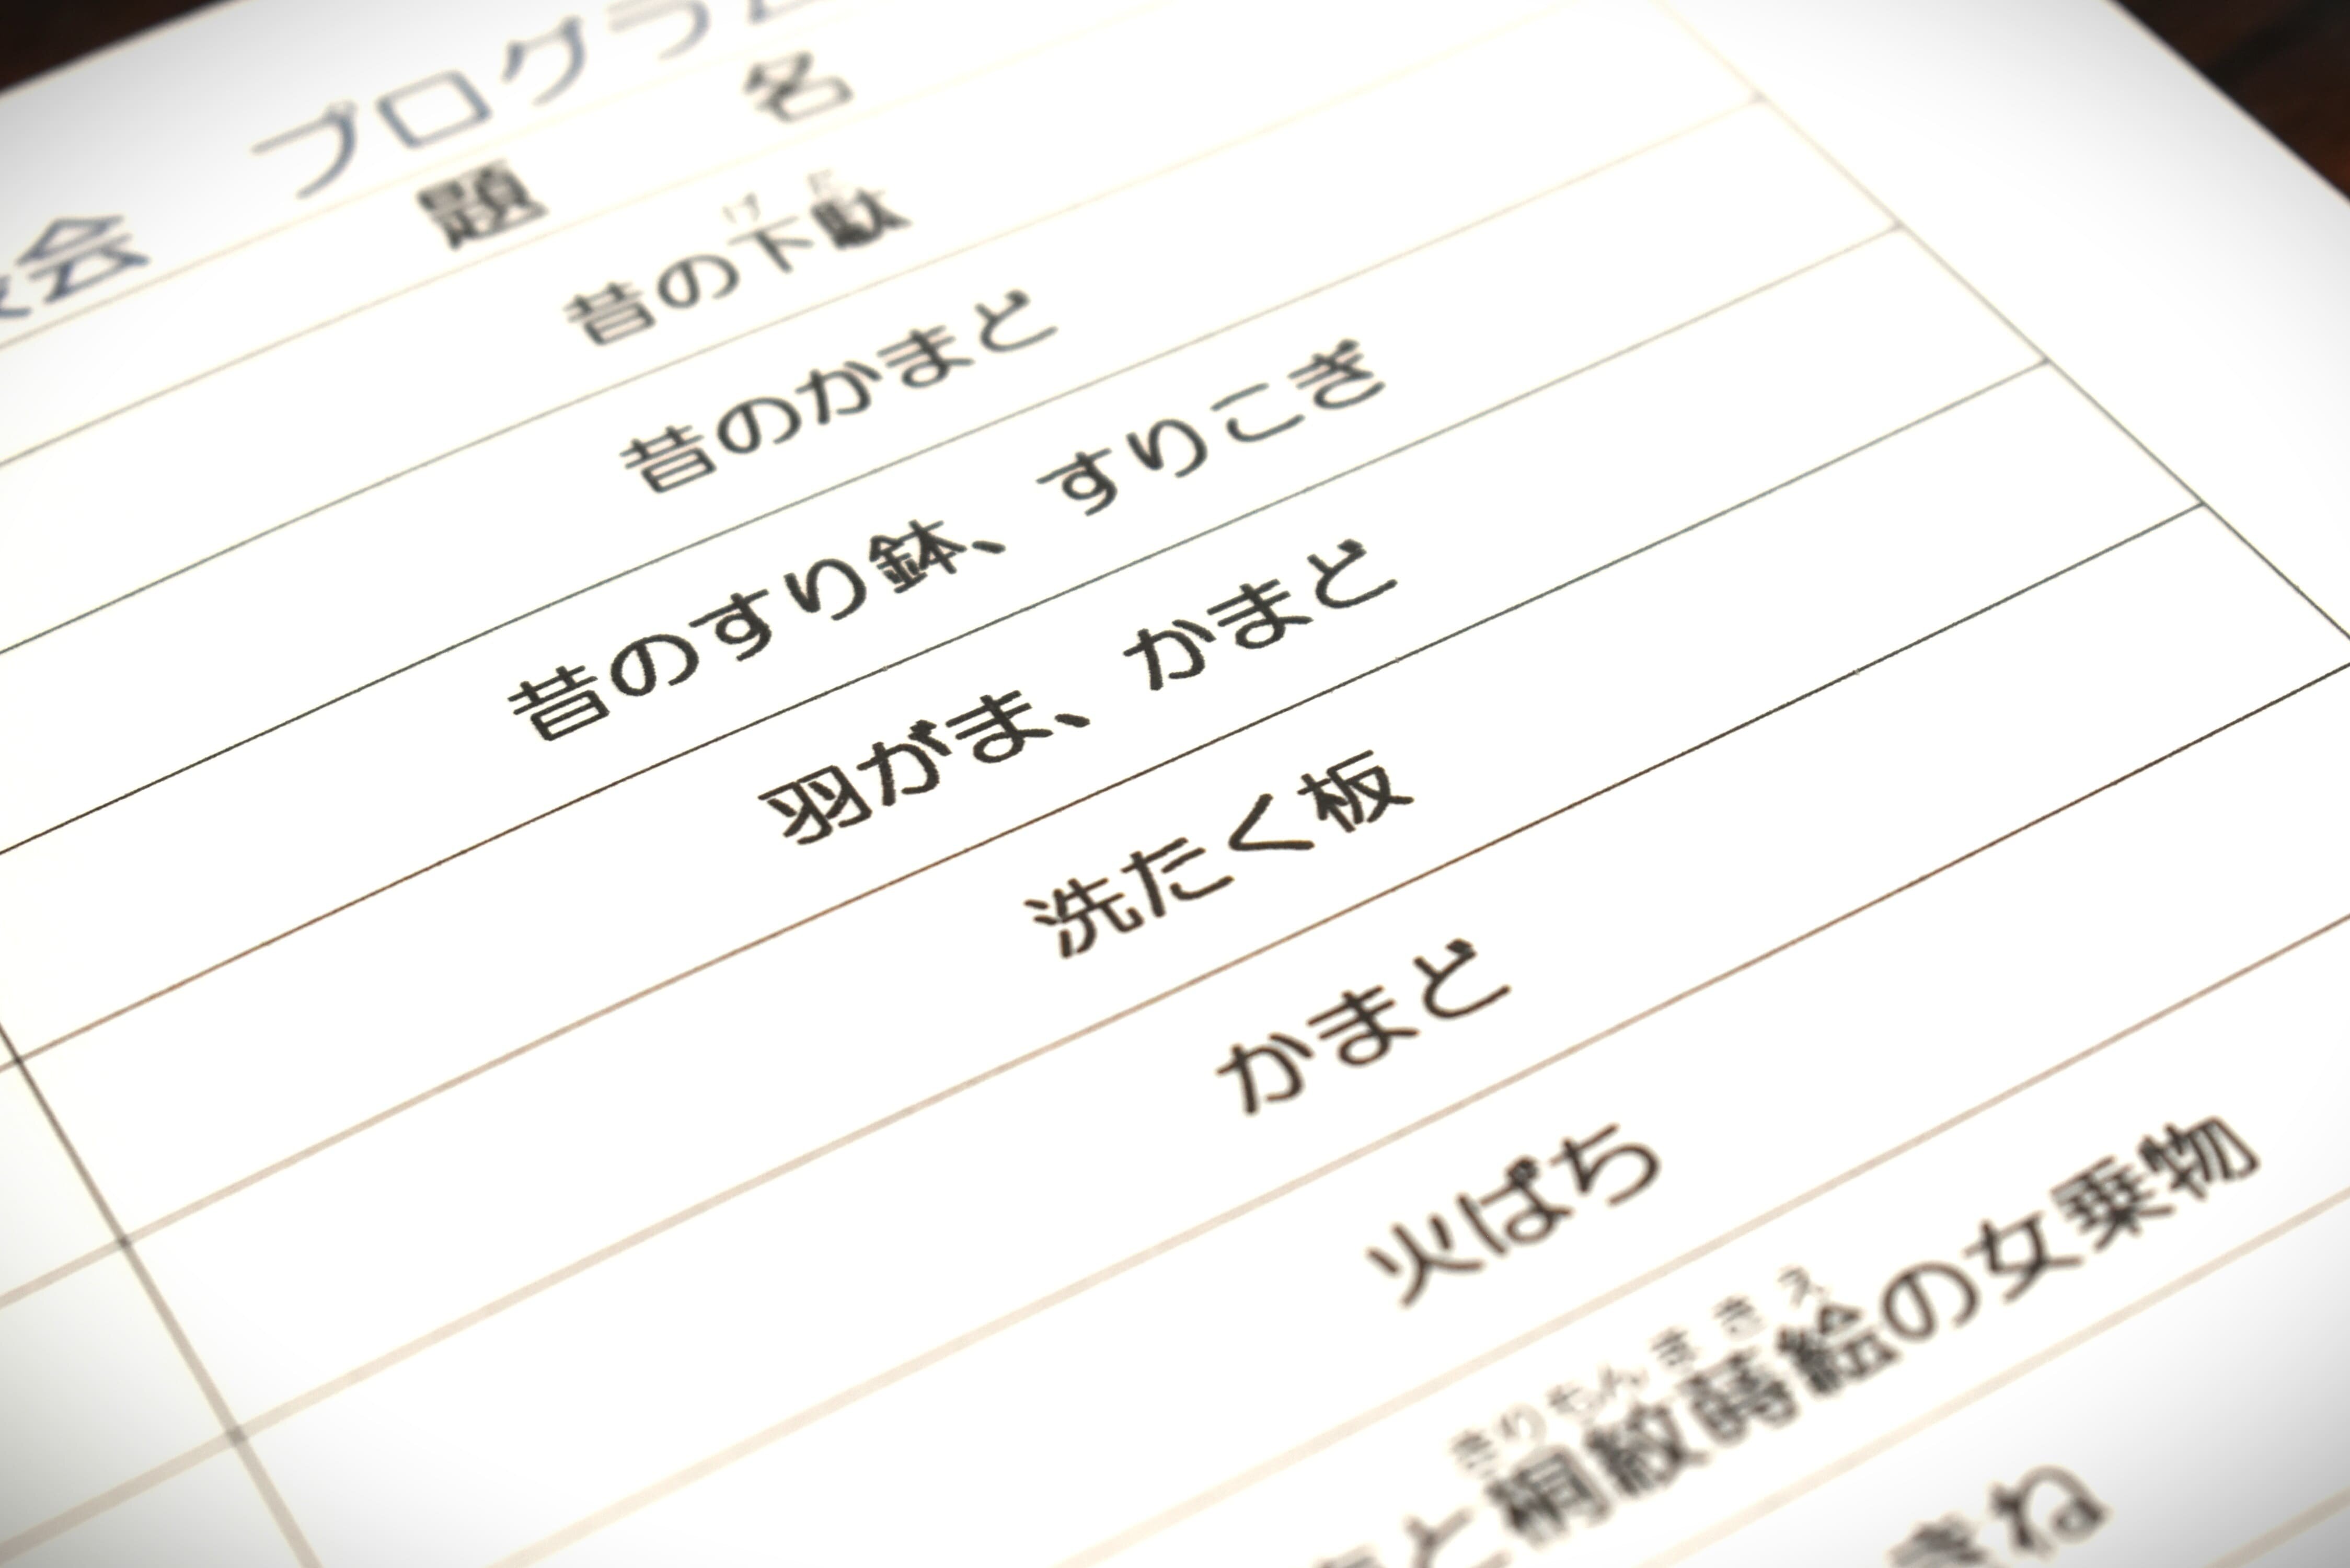 会 プログラム
題 名
昔の下駄
げ た
昔のかまど
昔のすり鉢、すりこぎ
羽がま、かまど
洗たく板
かまど
火ばち
と桐紋蒔絵の女乗物
きりもんまきえ
きね